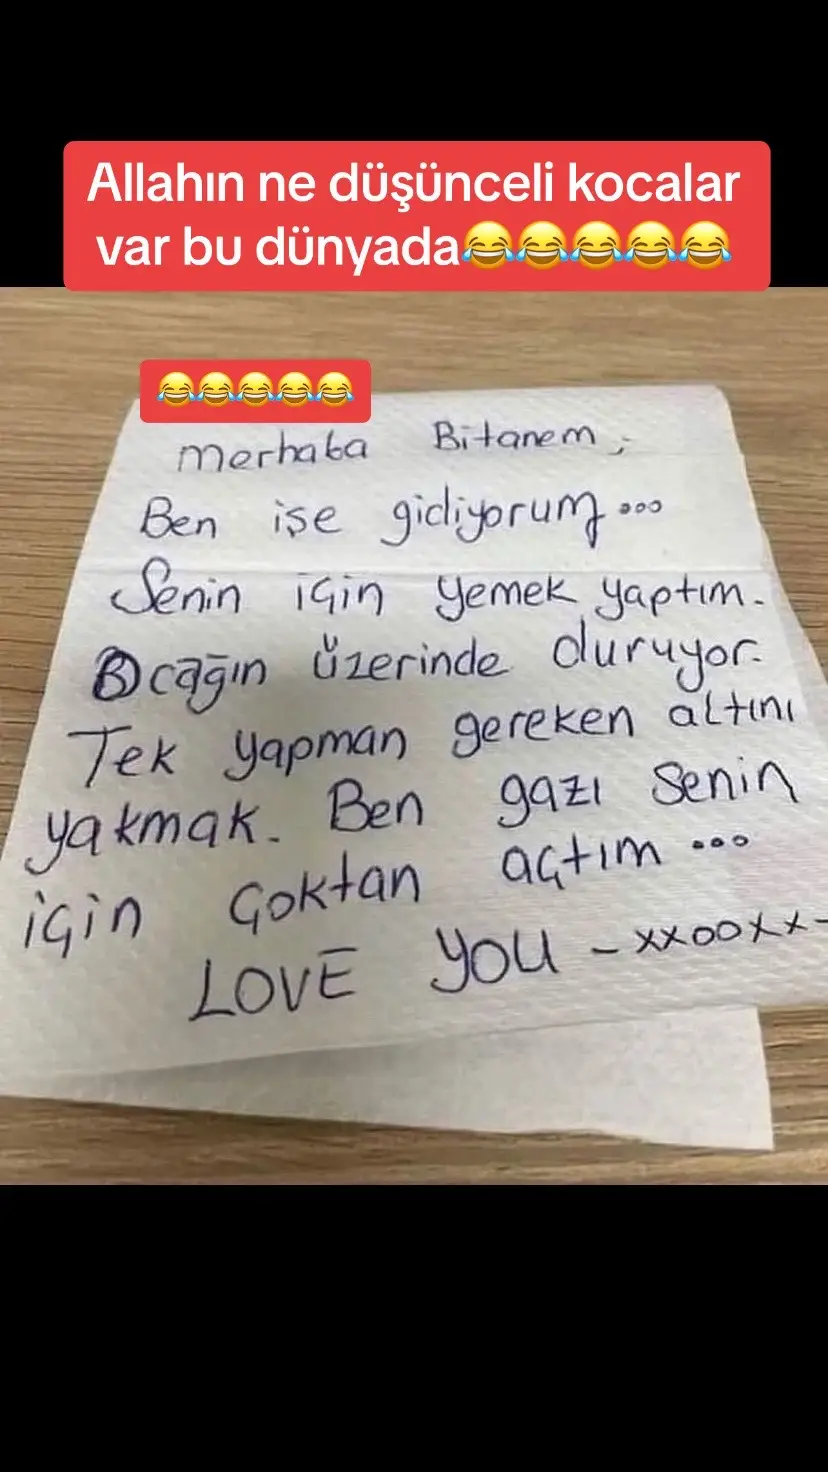 Allahın ne düşünceli kocalar
var bu dünyada😂😂😂😂😂
😂😂😂😂😂
Merhaba Bitanem,
Ben işe gidiyorum...
Senin için yemek yaptım.
Ocağın üzerinde duruyor.
Tek yapman gereken altını
yakmak. Ben gazı senin
için çoktan açtım...
LOVE YOU -xxooxx-